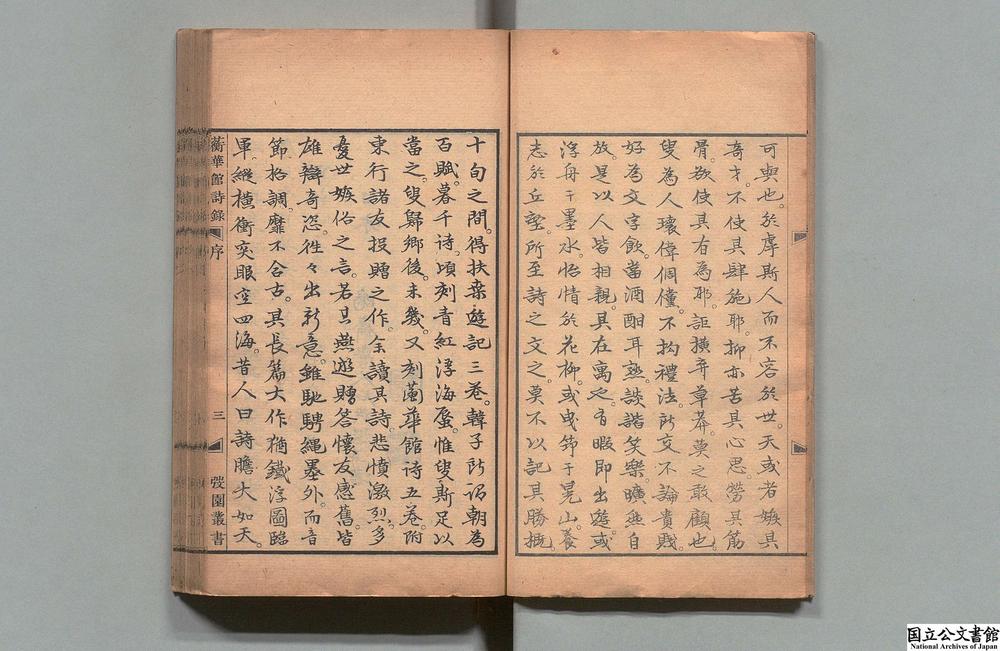 可輿也。於虖斯人而不容於世。天或者嫉其
奇才。不使其肆施耶。抑亦苦其心思。勞其筋
骨。欲使其有為耶。詎橫弃草莽。莫之敢顧也。
叟為人瓌偉倜儻。不拘禮法。所交不論貴賤。
好為文字飲。當酒酣耳熱。談諧笑樂。曠然自
放。是以人皆相親。其在寓。々有暇即出遊。或
浮舟于墨水。怡情於花柳。或曳筇于晃山。養
志於丘壑。所至詩之文之。莫不以記其勝概。
十旬之間。得扶桒遊記三卷。韓子所謂朝為
百賦。暮千诗。頃刻青紅浮海蜃。惟叟斯足以
當之。叟歸鄉後。未幾。又刻蘅華館诗五卷。附
東行諸友投贈之作。余讀其詩。悲憤激烈。多
憂世嫉俗之言。若其燕遊贈答懷友感舊。皆
雄辯奇恣。徃々出新意。雖馳騁繩墨外。而音
節格調。靡不合古。其長篇大作。猶鐵浮圖臨
軍。縱橫衝突。眼空四海。昔人曰詩膽大如天。
蘅華館詩錄
序
三
弢園叢書
国立公文書館
National Archives of Japan